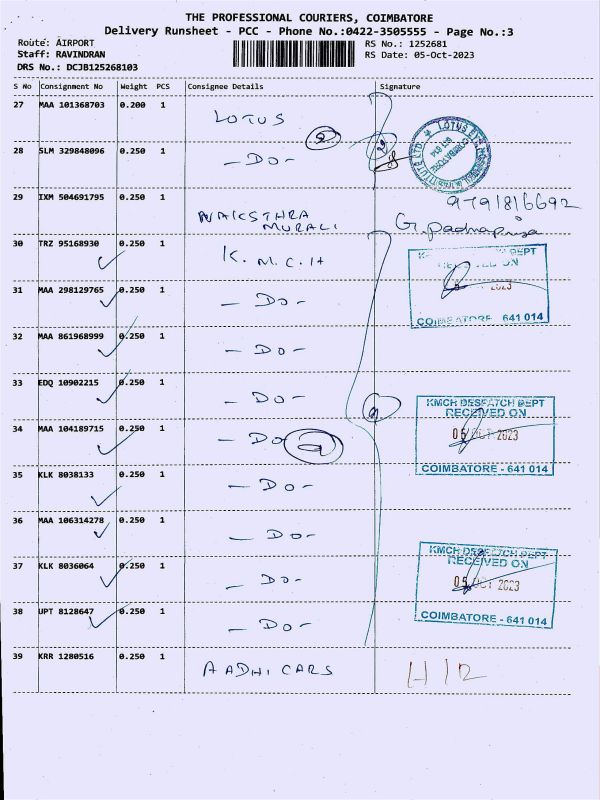 THE PROFESSIONAL COURIERS, COIMBATORE
Delivery Runsheet - PCC - Phone No.:0422-3505555 - Page No.:3
Route: AIRPORT
RS No.: 1252681
Staff: RAVINDRAN
RS Date: 05-Oct-2023
DRS No.: DCJB125268103
S No Consignment No Weight PCS Consignee Details Signature
27 MAA 101368703 0.200 1 LOTUS
2
28 SLM 329848096 0.250 1 - DO -
29 IXM 504691795 0.250 1 NAKSTHRA MURALI
9791816692
G. Padmapriya
30 TRZ 95168930 0.250 1 K.M.C.H
DEPT
ON
2023
COIMBATORE 641 014
31 MAA 298129765 0.250 1 - DO -
32 MAA 861968999 0.250 1 - DO -
33 EDQ 10902215 0.250 1 - DO -
9
KMCH DESPATCH DEPT
RECEIVED ON
05 OCT 2023
COIMBATORE - 641 014
34 MAA 104189715 0.250 1 - DO -
9
35 KLK 8038133 0.250 1 - DO -
36 MAA 106314278 0.250 1 - DO -
37 KLK 8036064 0.250 1 - DO -
KMCH DESPATCH DEPT
RECEIVED ON
05 OCT 2023
COIMBATORE - 641 014
38 UPT 8128647 0.250 1 - DO -
39 KRR 1280516 0.250 1 AADHI CARS